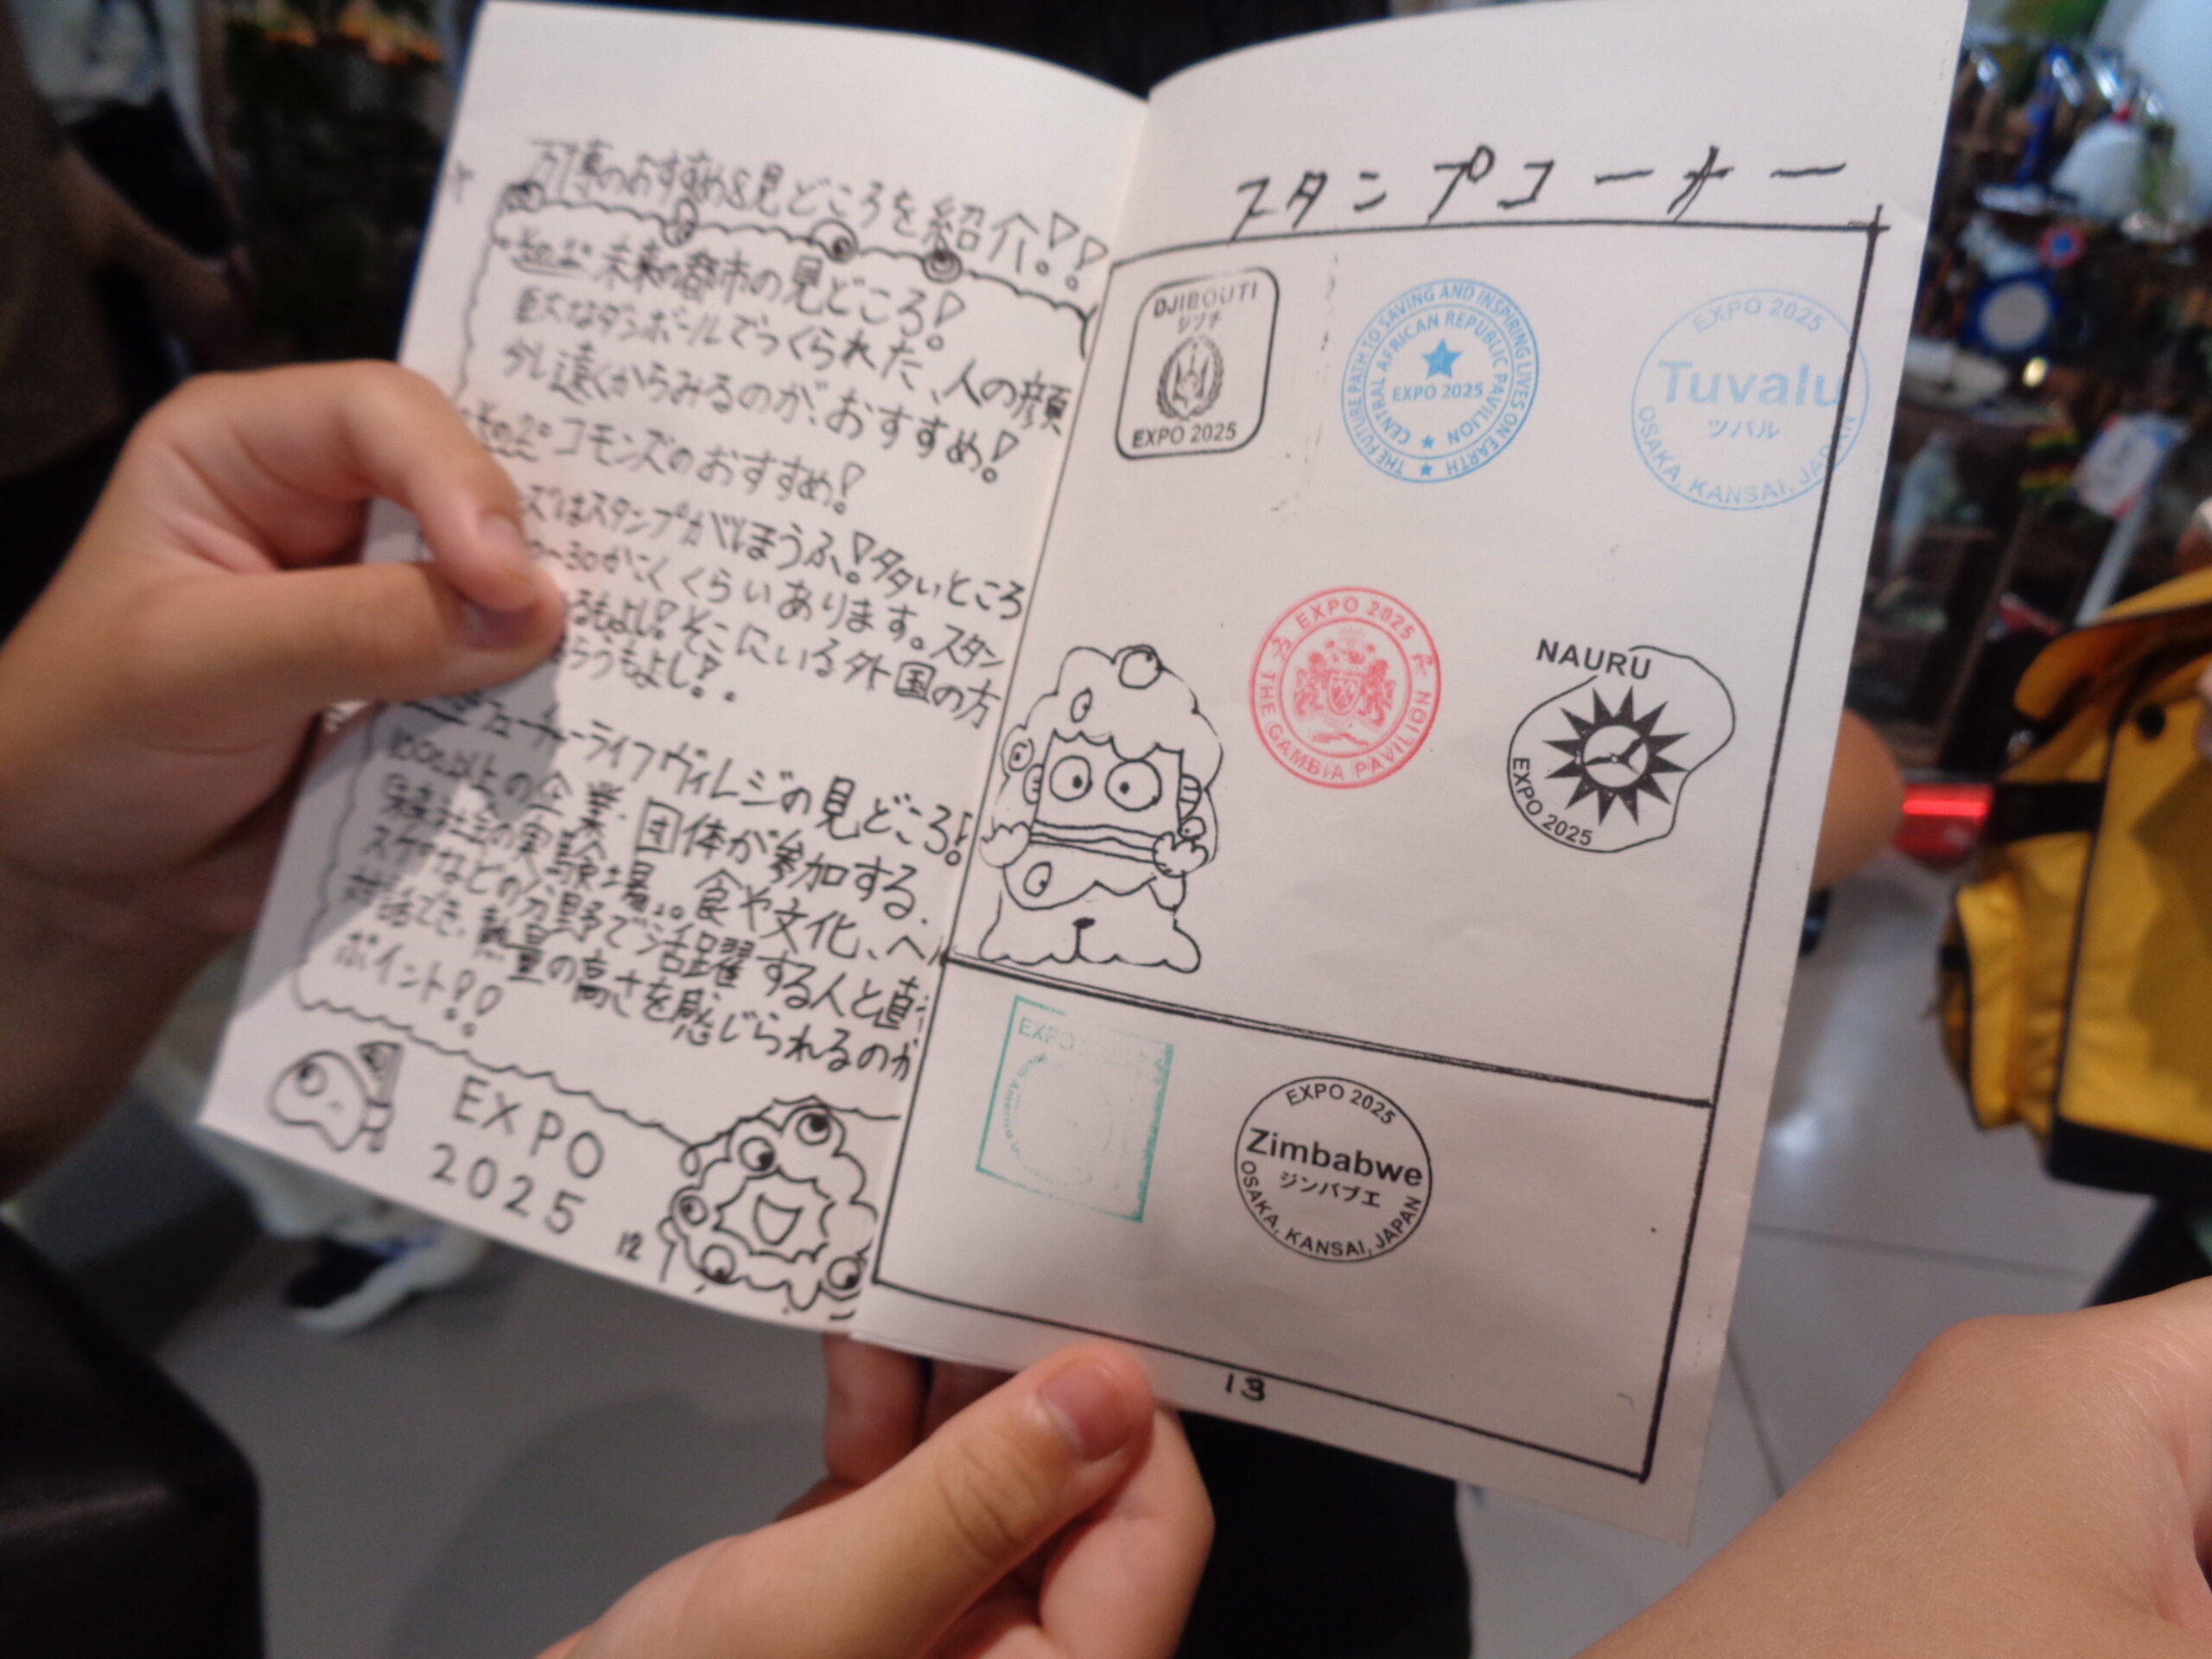 万博のおすすめ&見どころを紹介!!
その1° 未来の都市の見どころ!
巨大なダンボールでつくられた、人の顔
少し遠くからみるのが、おすすめ!
その2° コモンズのおすすめ!
ズはスタンプがほうふ!多いところ
~30かこくくらいあります。スタン
るもよし!そこにいる外国の方
らうもよし!.
フューチャーライフヴィレジの見どころ!
100以上の企業、団体が参加する、
未来社会の実験場。食や文化、ヘル
スケアなどの分野で活躍する人と直
対話でき、熱量の高さを感じられるのが
ポイント!!
EXPO
2025
12
スタンプコーナー
DJIBOUTI
ジブチ
EXPO 2025
THE FUTURE PATH TO SAVING AND INSPIRING LIVES ON EARTH
CENTRAL AFRICAN REPUBLIC PAVILION
EXPO 2025
EXPO 2025
Tuvalu
ツバル
OSAKA, KANSAI, JAPAN
EXPO 2025
THE GAMBIA PAVILION
NAURU
EXPO 2025
EXPO
EXPO 2025
Zimbabwe
ジンバブエ
OSAKA, KANSAI, JAPAN
13